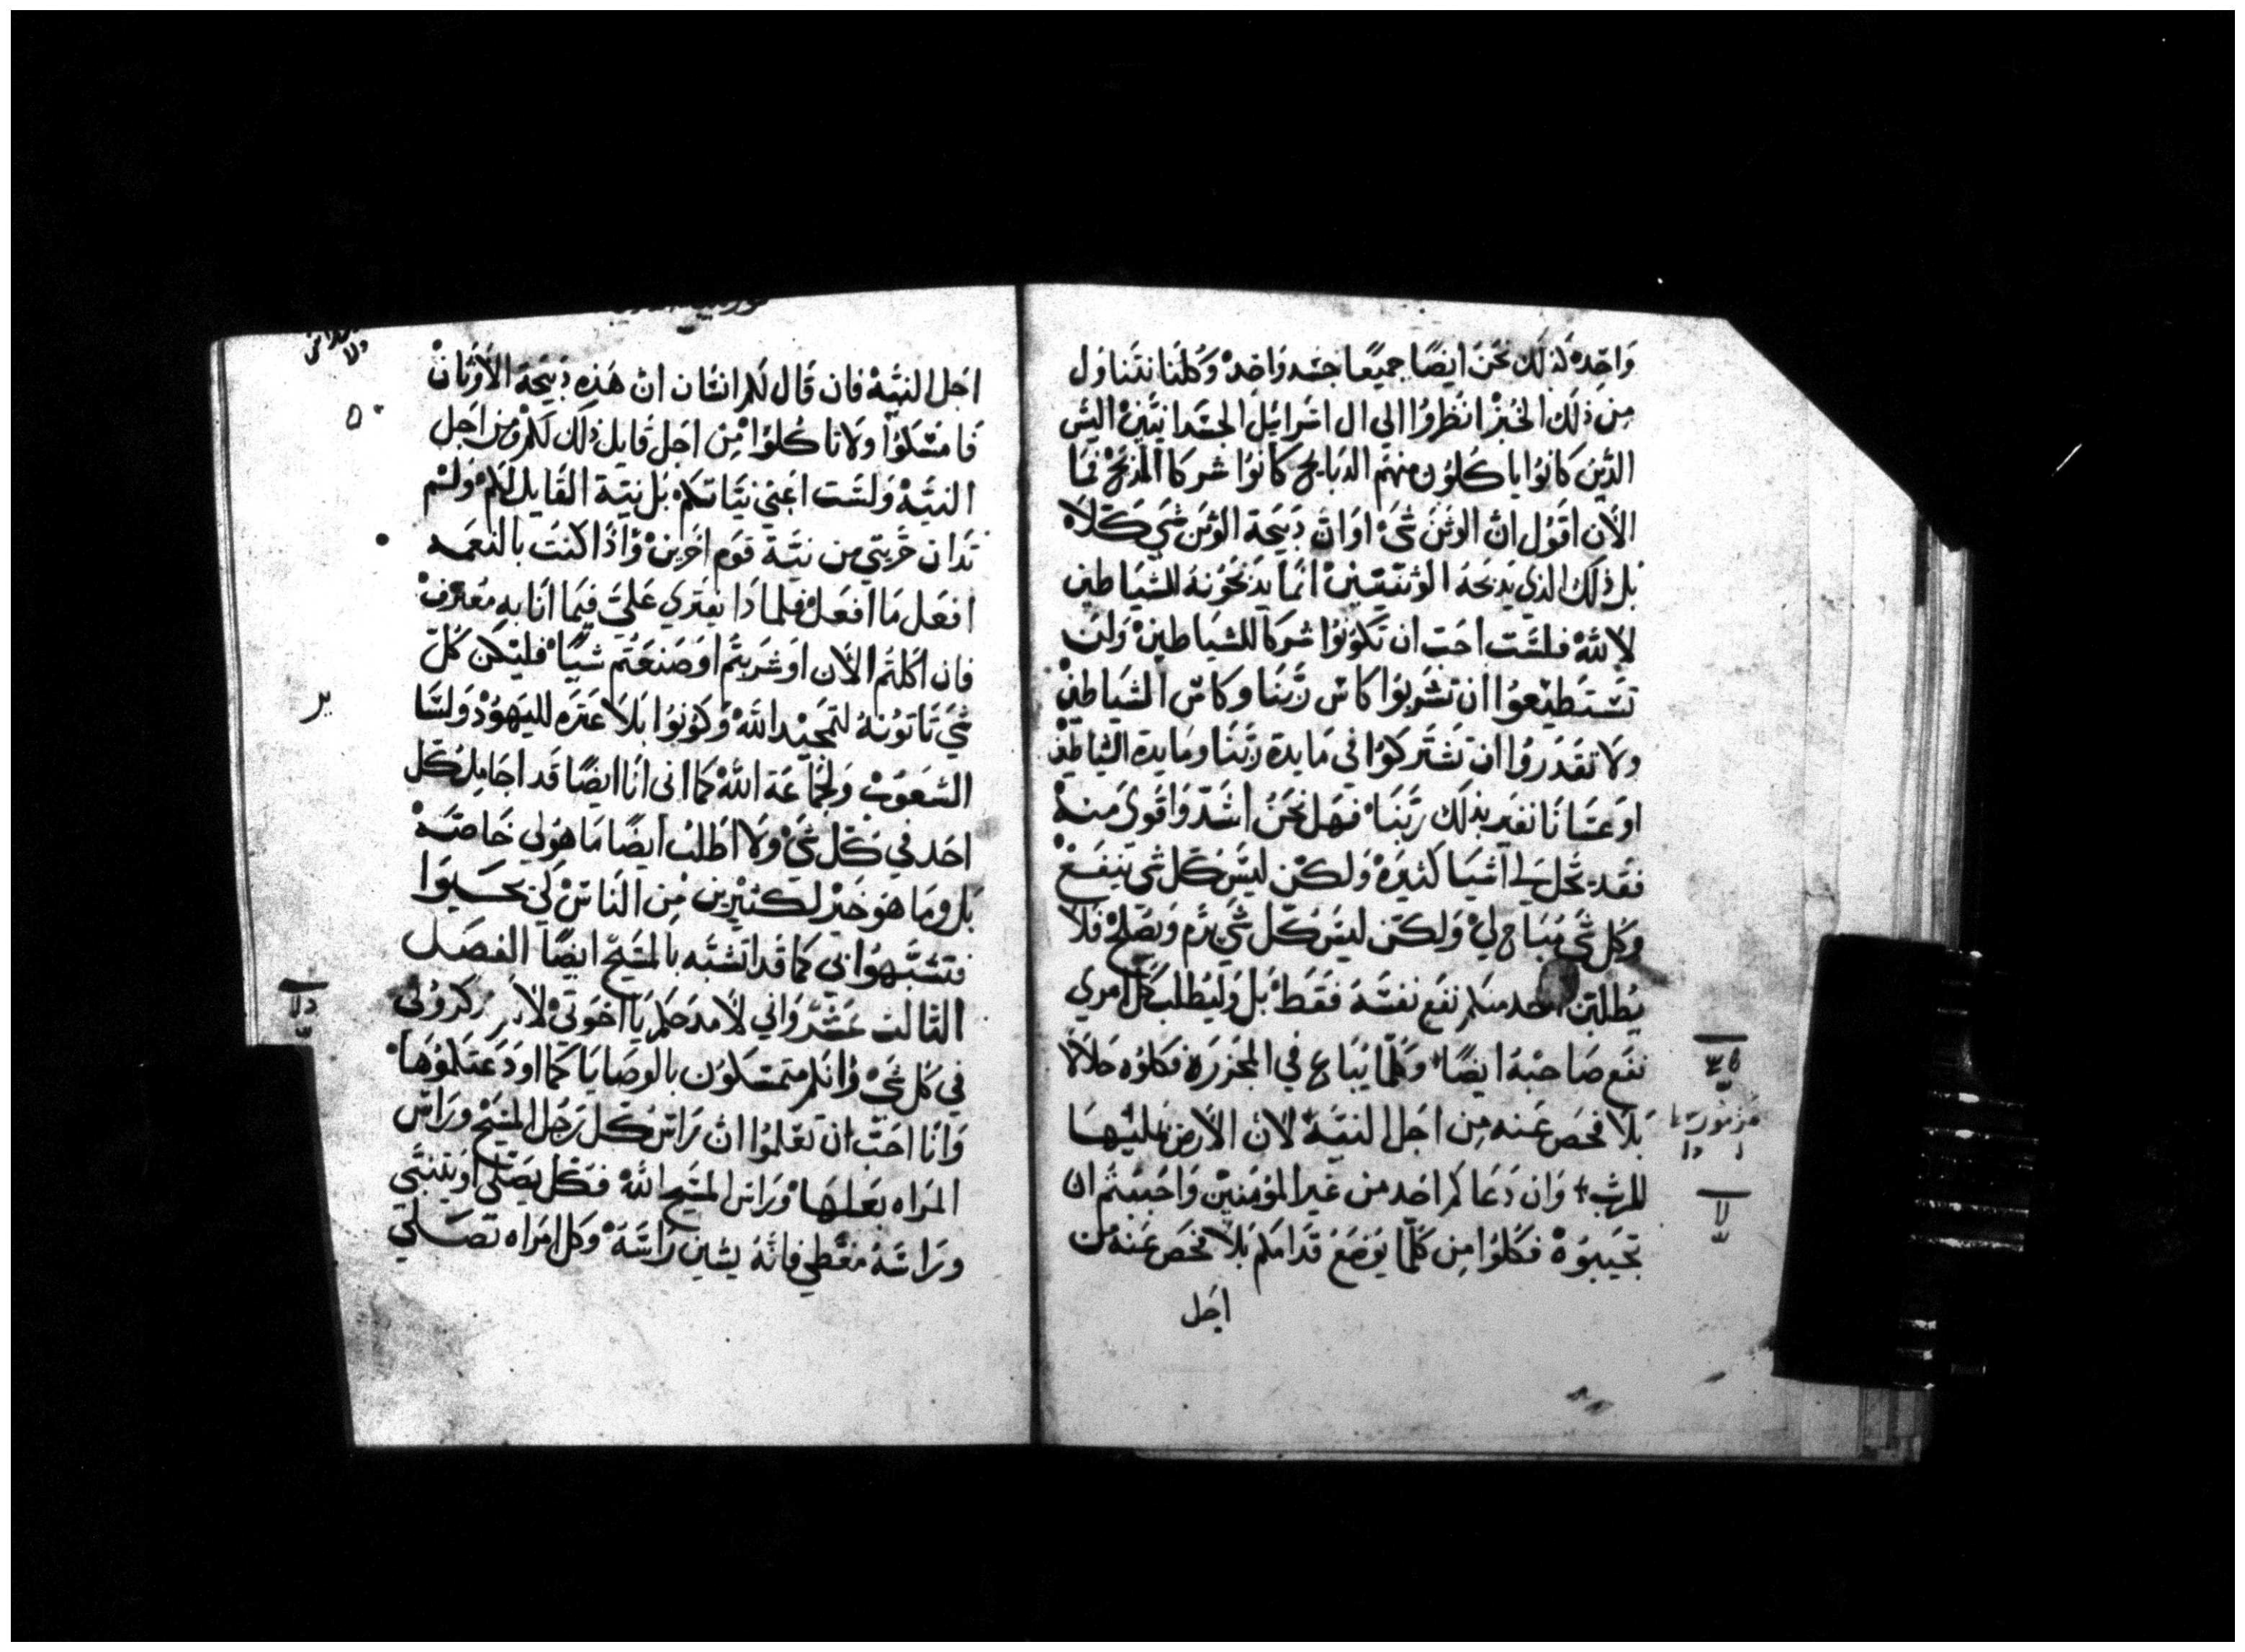 وَاحِدهْ لَذلَك نَحنُ ايضًا جميعًا جسَد وَاحِدهْ وَكلنَا نتَناوَل
مِن ذلَك الخُبزْ انظرُوُا الي ال اسَرايَل الجسَدانيَينْ اليسَ
الذينَ كانوُا ياكلوُن منهم الدبايح كانوُا شركا المدبَحْ فمَا
الاَن اقوُل انَ الوثنَ شيَ اوَانَ دَبيَحة الوثنَ شيَ كلاهْ
بل ذلَك الذي يَدبحَهُ الوثنيَينْ انمَا يَدبحَوُنهُ للشيَاطين
لا للهْ فلسَت احَب ان تَكوُنوُا شركا للشيَاطينْ وَلن
تسَتطيَعوُا ان تشرَبوُا كاسَ رَبنَا وكاسَ الشيَاطينْ
ولا تقدَروُا ان تشتَركوُا في مَايدة رَبنَا ومَايدة الشيَاطينْ
اوعسَانا نغير بذلَك رَبنَا فهَل نحَنُ اشَدّ وَاقوَي منهْ
فقد تحَل لي اشيَا كثيرَهْ وَلكن ليسَ كل شيَ ينفعْ
وَكل شيَ مُبَاح ليْ وَلكن ليسَ كل شيَ يرَم وَيصَلحْ فلا
يُطلبَن احد منكم نفع نفسَهُ فقط بَل وَليُطلب كل امري
نفع صَاحبهُ ايضًا وَكلمَا يُبَاع في المجَزرَة فكلوُه حَلالا
بلا فحَص عنه مِن اجَل النيَة لان الاَرض بمليَهَا
للربَ وَان دَعَاكم احَد من غيَر المؤمنيَن وَاحَببَتم ان
تجيَبوُهْ فكلوُا مِن كلمَا يوُضَعُ قدامَكم بلا فحَص عنهُ من
اجَل
اجَل النيَهْ فان قال لكم انسَان ان هَذه دَبيَحة الاَوثانْ
فامسَكوُا ولا تاكلوُا مِن اجَل قايل ذلَك لكم ومن اجَل
النيَهْ وَلسَت اعَني نيَاتكمْ بَل نيَة القايل لكمْ وَلم
تدَان حُريتي من نيَة قوَم اخَرينْ وَاذا كنتَ بالنعمه
افعَل مَا افعَل فلمَا دَا يفتري عَليَ فيَما انا بهِ مُعترفْ
فان اكلتم الاَن اوَ شرَبتم اوَ صَنعتم شيَا فليَكن كل
شيَ تاتوُنهُ لتمجيَد اللهْ وَكوُنوُا بَلا عَثرَه لليَهوُد وَلسَا
الشعوَبْ وَلجمَاعَة اللهْ كما انى انَا ايضًا قد اجَامِل كل
احَد في كل شيَ وَلا اطلبْ ايضًا مَا هوَ لي خَاصَهْ
بَل وما هوَ خيَر لكثيَرين مِن الناسْ لكي يحَيَوا
فتشبَهوُا بي كما قد اتشَبه بالمسَيح ايضًا الفصَل
الثالث عَشر وَاني لامدَحكم يَا اخوَتي لا
في كل شيَ وَانكم متمسَكوُن بالوصَايا كما اودَعتكموُهَا
وَانا احَبَ ان تعَلموُا انَ رَاسَ كل رَجُل المسَيحْ وَرَاسَ
المرَاه بَعلهَا وَرَاس المسَيح اللهْ فكل يصَلي اوَ يتنبَي
ورَاسَهُ مغطي فانهُ يشين رَاسَهْ وَكل امرَاه تصَلي